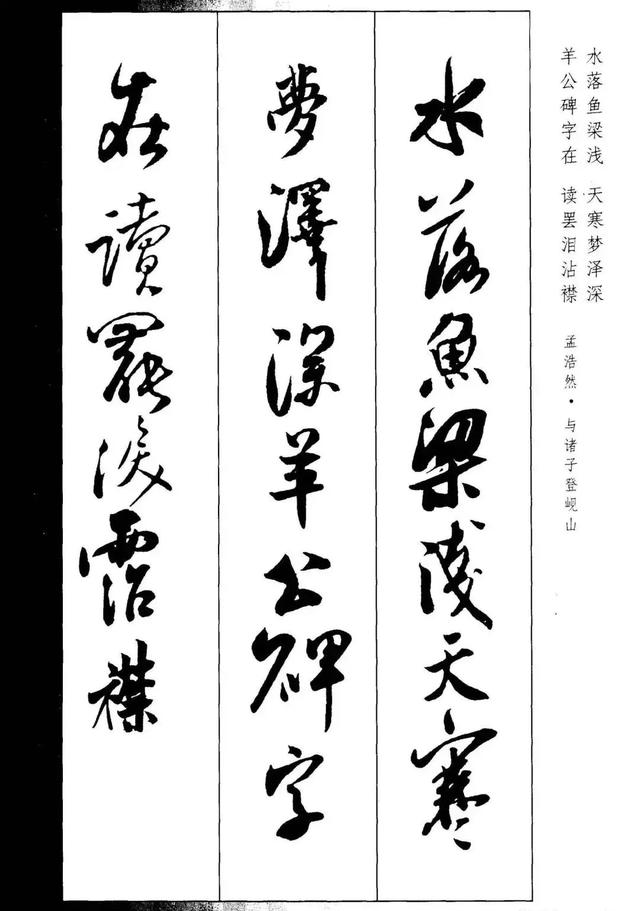 水落鱼梁浅 天寒梦泽深
羊公碑字在 读罢泪沾襟
孟浩然·与诸子登岘山
水落魚梁淺天寒
夢澤深羊公碑字
在讀罷淚霑襟